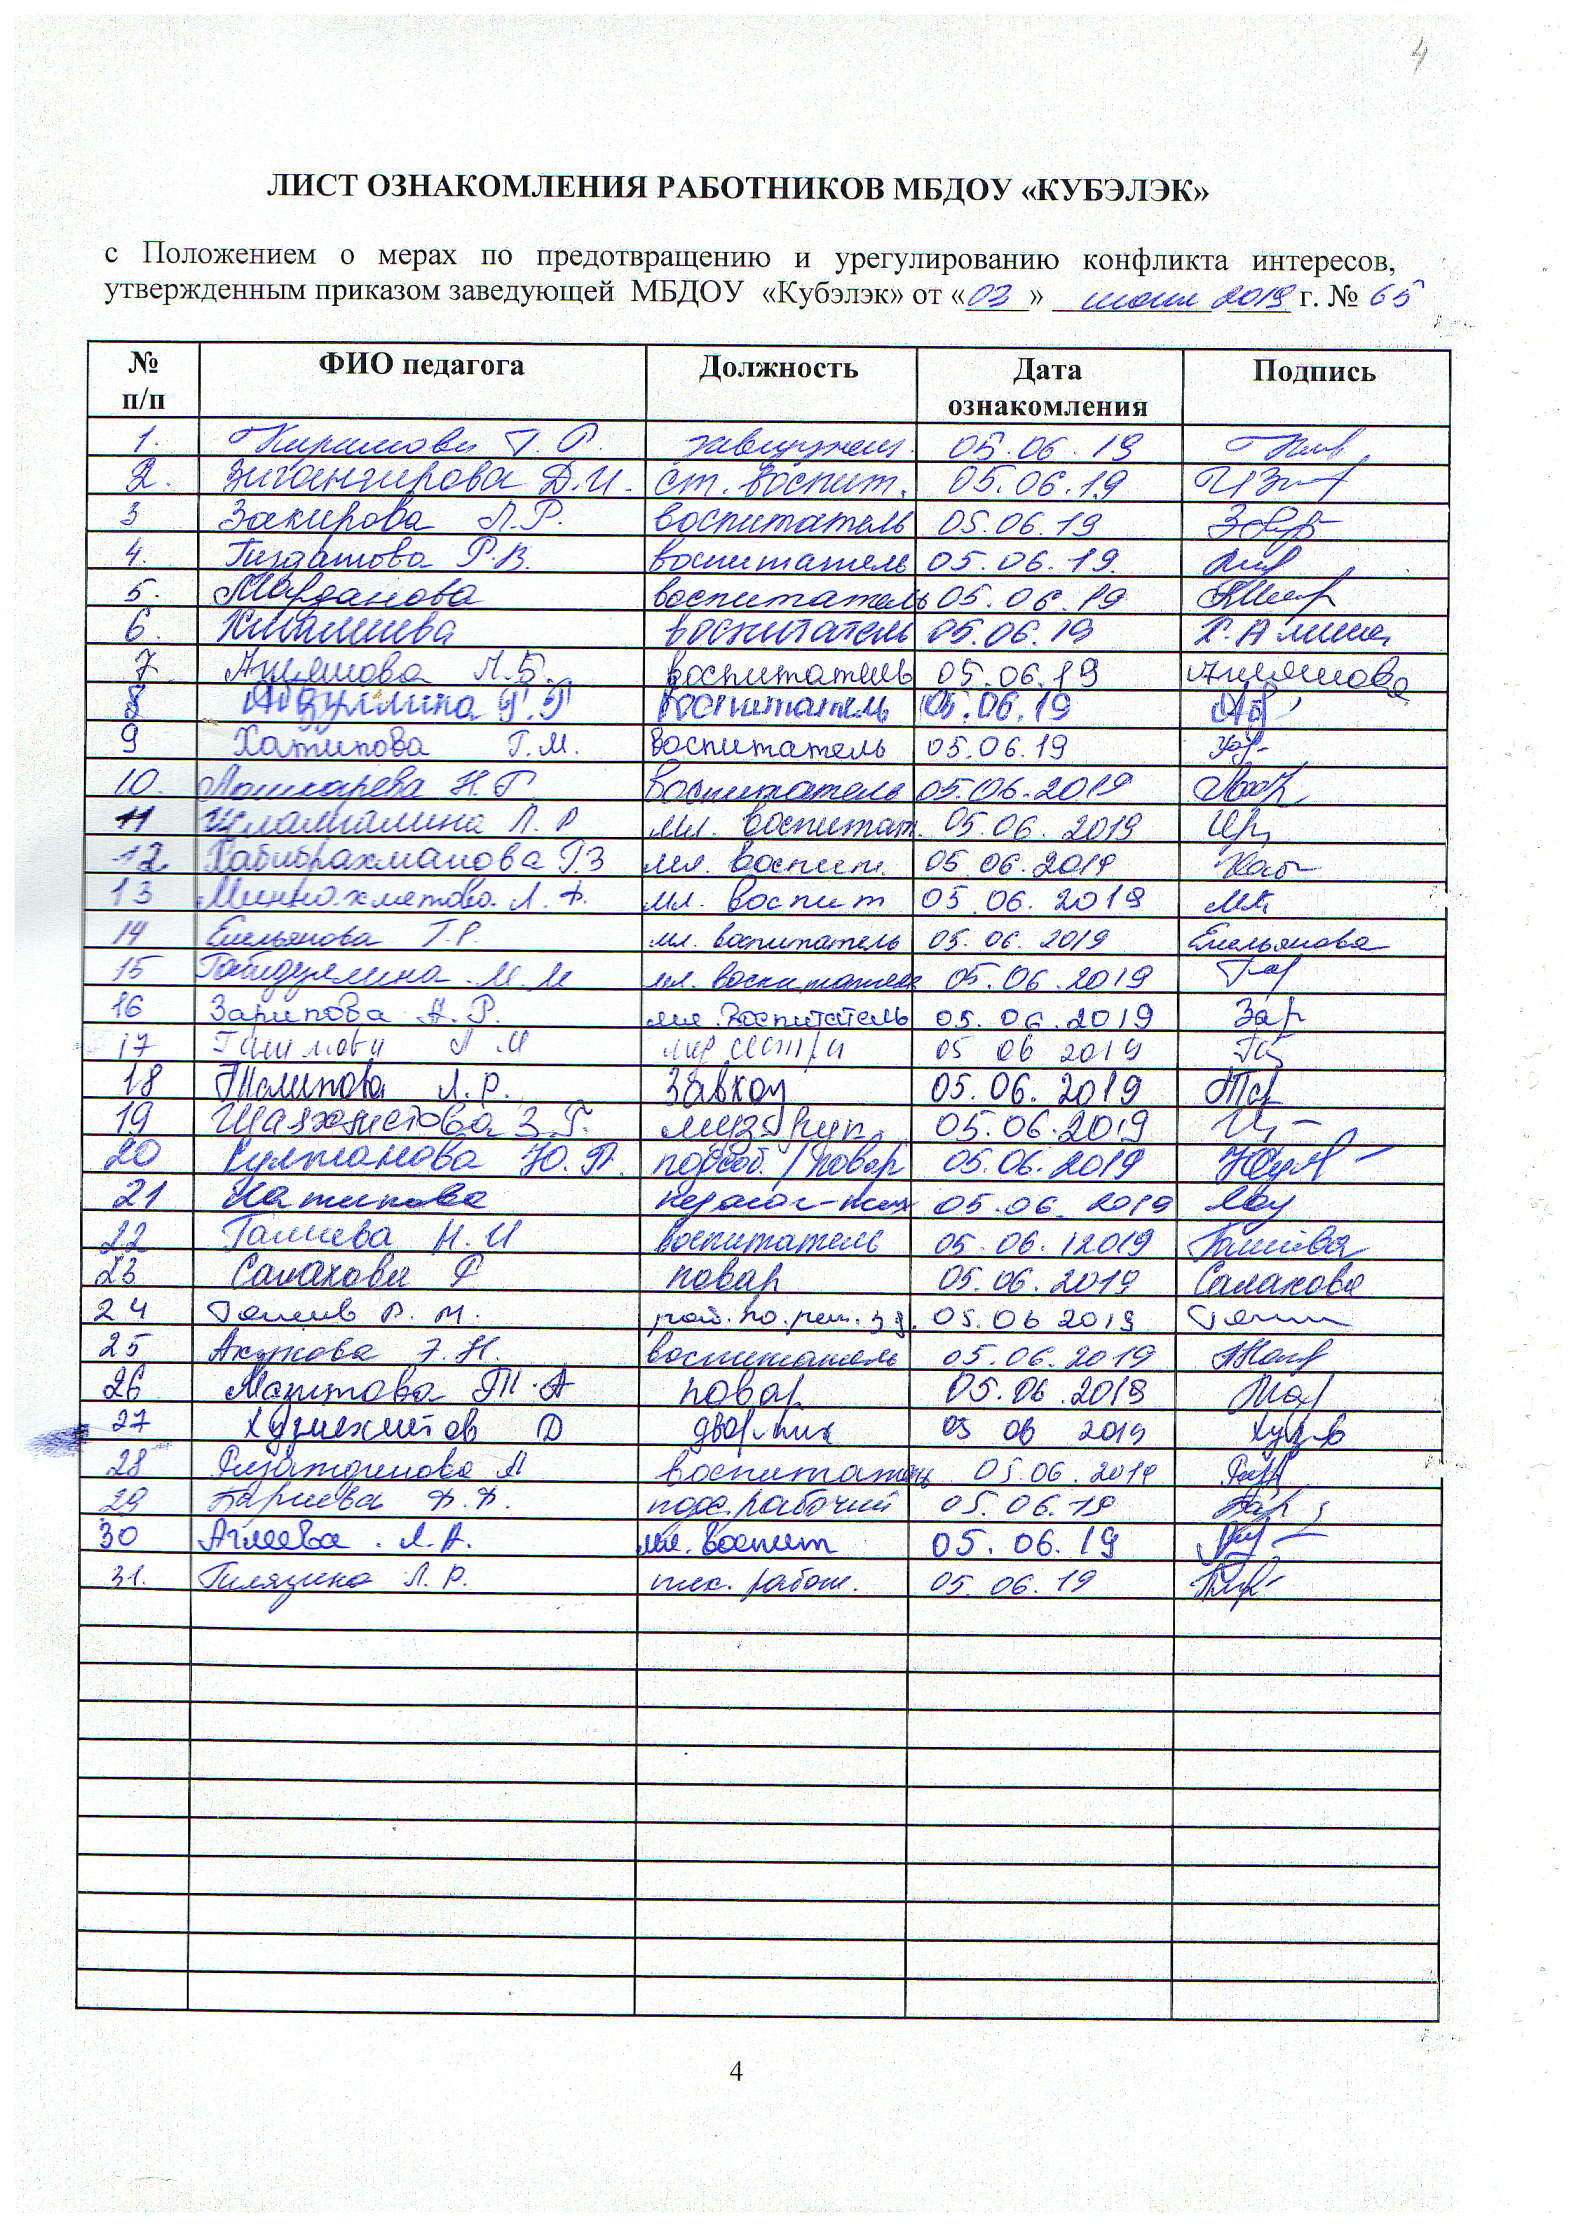 4
ЛИСТ ОЗНАКОМЛЕНИЯ РАБОТНИКОВ МБДОУ «КУБЭЛЭК»
с Положением о мерах по предотвращению и урегулированию конфликта интересов,
утвержденным приказом заведующей МБДОУ «Кубэлэк» от «03» июня 2019 г. № 65
№ п/п ФИО педагога Должность Дата ознакомления Подпись
1. Каримова Г. Р. 05.06.19
2. Зигангирова Д.И. ст. воспит. 05.06.19
3 Закирова Л.Р. воспитатель 05.06.19
4. Гиздатова Р.В. воспитатель 05.06.19.
5. Марданова воспитатель 05.06.19
6. воспитатель 05.06.19
7 Л.Б. воспитатель 05.06.19
8 Абдуллина Г.Г воспитатель 05.06.19
9 Хатипова Г.М. воспитатель 05.06.19
10. Лошкарева Н.Г воспитатель 05.06.2019
11 Исламгалина Л.Р мл. воспитат. 05.06.2019
12 Хабибрахманова Г.З мл. воспит. 05.06.2019
13 Миннахметова Л.Ф. мл. воспит 05.06.2019
14 Емельянова Г.Р. мл. воспитатель 05.06.2019 Емельянова
15 Габидуллина М.М мл. воспитатель 05.06.2019
16 Зарипова А.Р. мл. воспитатель 05.06.2019 Зар
17 05 06 2019
18 Талипова Л.Р. завхоз 05.06.2019
19 Шаяхметова З.Г. муз. рук. 05.06.2019
20 Султанова Ю.А. подсоб. / повар 05.06.2019
21 05.06.2019
22 Галиева Н.И воспитатель 05.06.2019 Галиева
23 Салахова Р повар 05.06.2019 Салахова
24 Р.М. 05.06 2019
25 Э.Н. воспитатель 05.06.2019
26 Мазитова Т.А повар 05.06.2019
27 Д дворник 05 06 2019
28 воспитатель 05.06.2019
29 Бариева Ф.Ф. подс. рабочий 05.06.19
30 Аглеева Л.А. мл. воспит 05.06.19
31. Гилязина Л.Р. тех. работ. 05.06.19
4